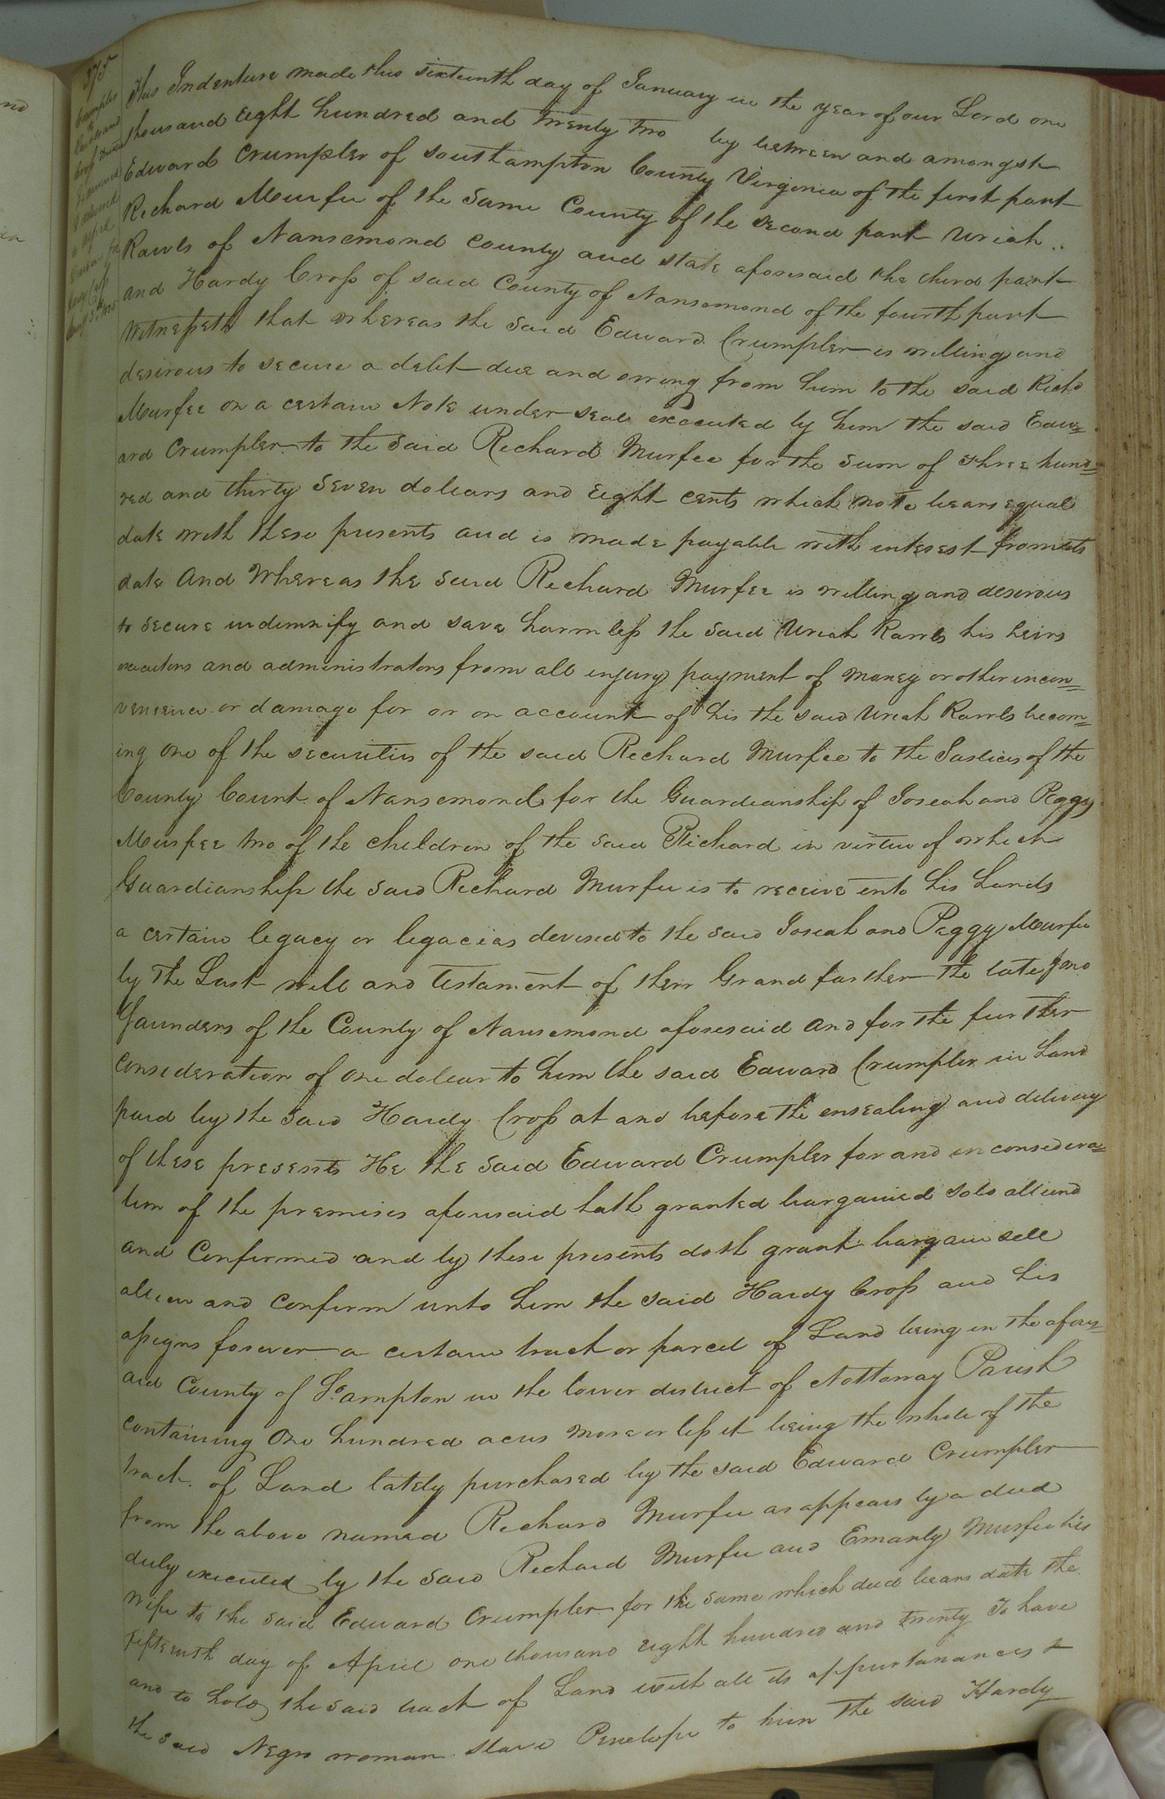 375
Crumpler
This Indenture made this sixteenth day of January in the year of our Lord one
thousand eight hundred and twenty two by between and amongst
Edward Crumpler of Southampton County Virginia of the first part
Richard Murfee of the Same County of the second part Uriah
Rawls of Nansemond County and state aforesaid the third part
and Hardy Cross of said County of Nansemond of the fourth part
Witnesseth that whereas the said Edward Crumpler is willing and
desirous to secure a debt due and owing from him to the said Richd
Murfee on a certain Note under seal executed by him the said Edw=
ard Crumpler to the said Richard Murfee for the sum of three hund=
red and thirty seven dollars and eight cents which note bears equal
date with these presents and is made payable with interest from its
date And Whereas the said Richard Murfee is willing and desirous
to secure indemnify and save harmless the said Uriah Rawls his heirs
executors and administrators from all injury payment of money or other incon=
venience or damage for or on account of his the said Uriah Rawls becom=
ing one of the securities of the said Richard Murfee to the Justices of the
County Court of Nansemond for the Guardianship of Josiah and Peggy
Murfee two of the children of the said Richard in virtue of which
Guardianship the said Richard Murfee is to receive into his hands
a certain legacy or legacies devised to the said Josiah and Peggy Murfee
by the Last will and testament of their Grand farther the late Jno
Saunders of the County of Nansemond aforesaid and for the further
consideration of one dollar to him the said Edward Crumpler in hand
paid by the said Hardy Cross at and before the ensealing and delivery
of these presents He the said Edward Crumpler for and in considera=
tion of the premises aforesaid hath granted bargained sold aliend
and Confirmed and by these presents doth grant bargain sell
alien and confirm unto him the said Hardy Cross and his
assigns forever a certain tract or parcel of Land being in the afores=
aid County of So.ampton in the lower district of Nottoway Parish
containing One hundred acres more or less it being the whole of the
tract of Land lately purchased by the said Edward Crumpler
from the above named Richard Murfee as appears by a deed
duly executed by the said Richard Murfee and Emanly Murfee his
Wife to the said Edward Crumpler for the same which deed bears date the
fifteenth day of April one thousand eight hundred and twenty To have
and to hold the said tract of Land with all its appurtanances &
the said Negro woman slave Penelope to him the said Hardy